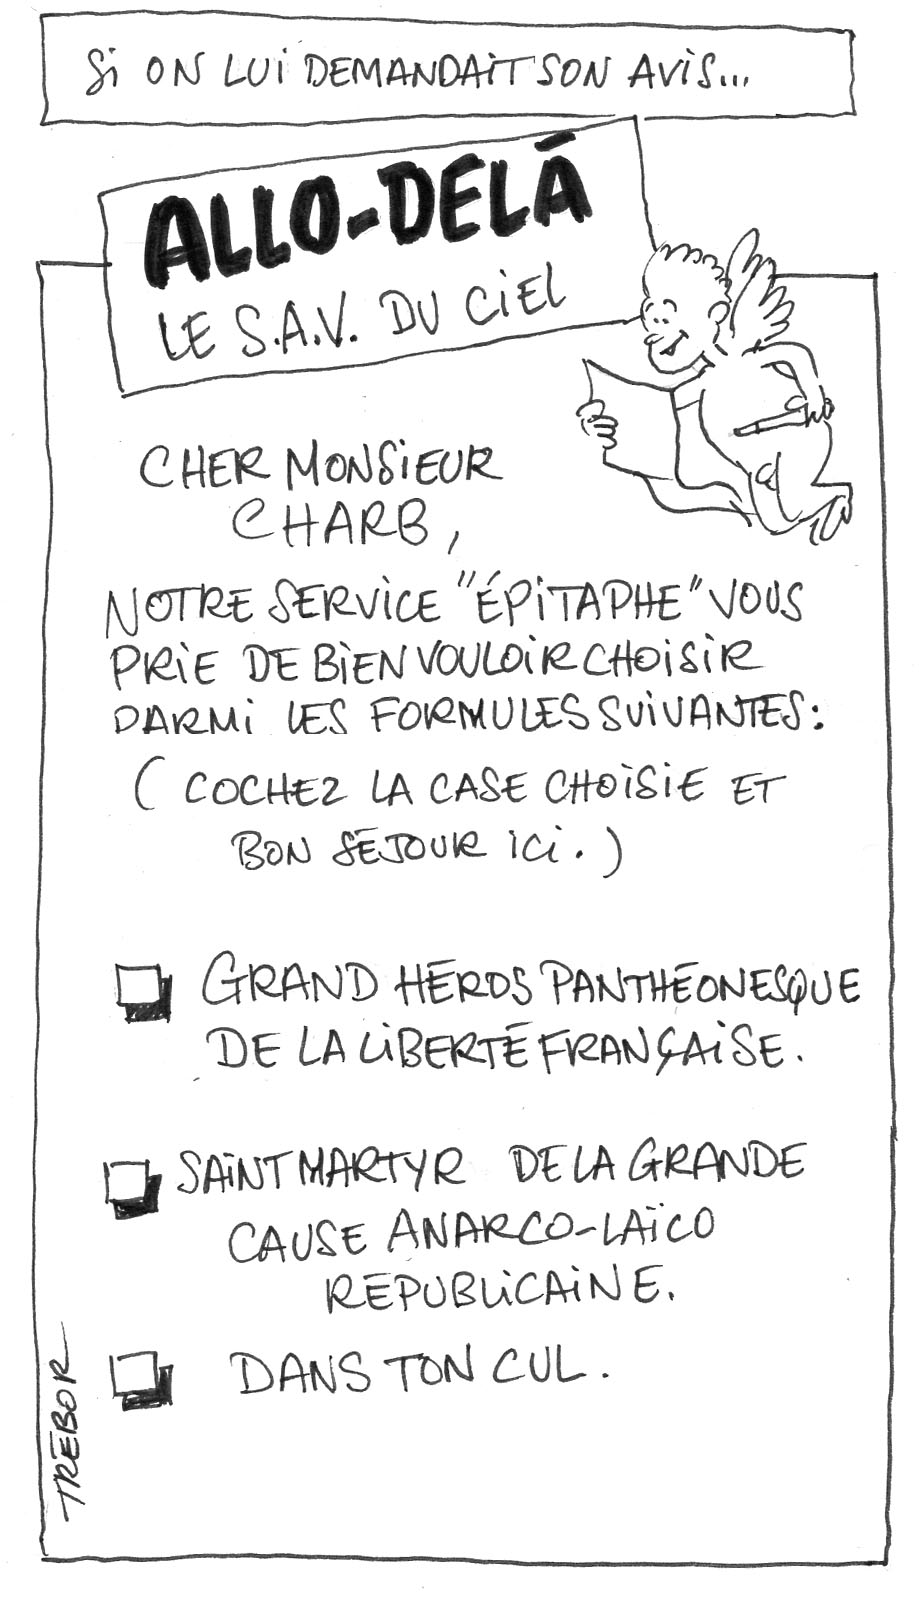 Si ON LUi DEMANDAiT SON AViS...
ALLO-DELÀ
LE S.A.V. DU CiEL
CHER MONSiEUR
CHARB,
NOTRE SERViCE "ÉPiTAPHE" VOUS
PRiE DE BiEN VOULOiR CHOiSiR
PARMi LES FORMULES SUiVANTES:
( COCHEZ LA CASE CHOiSiE ET
BON SÉJOUR iCi. )
GRAND HÉROS PANTHÉONESQUE
DE LA LiBERTÉ FRANÇAiSE.
SAiNT MARTYR DE LA GRANDE
CAUSE ANARCO-LAÏCO
RÉPUBLiCAiNE.
DANS TON CUL.
TRÉBOR